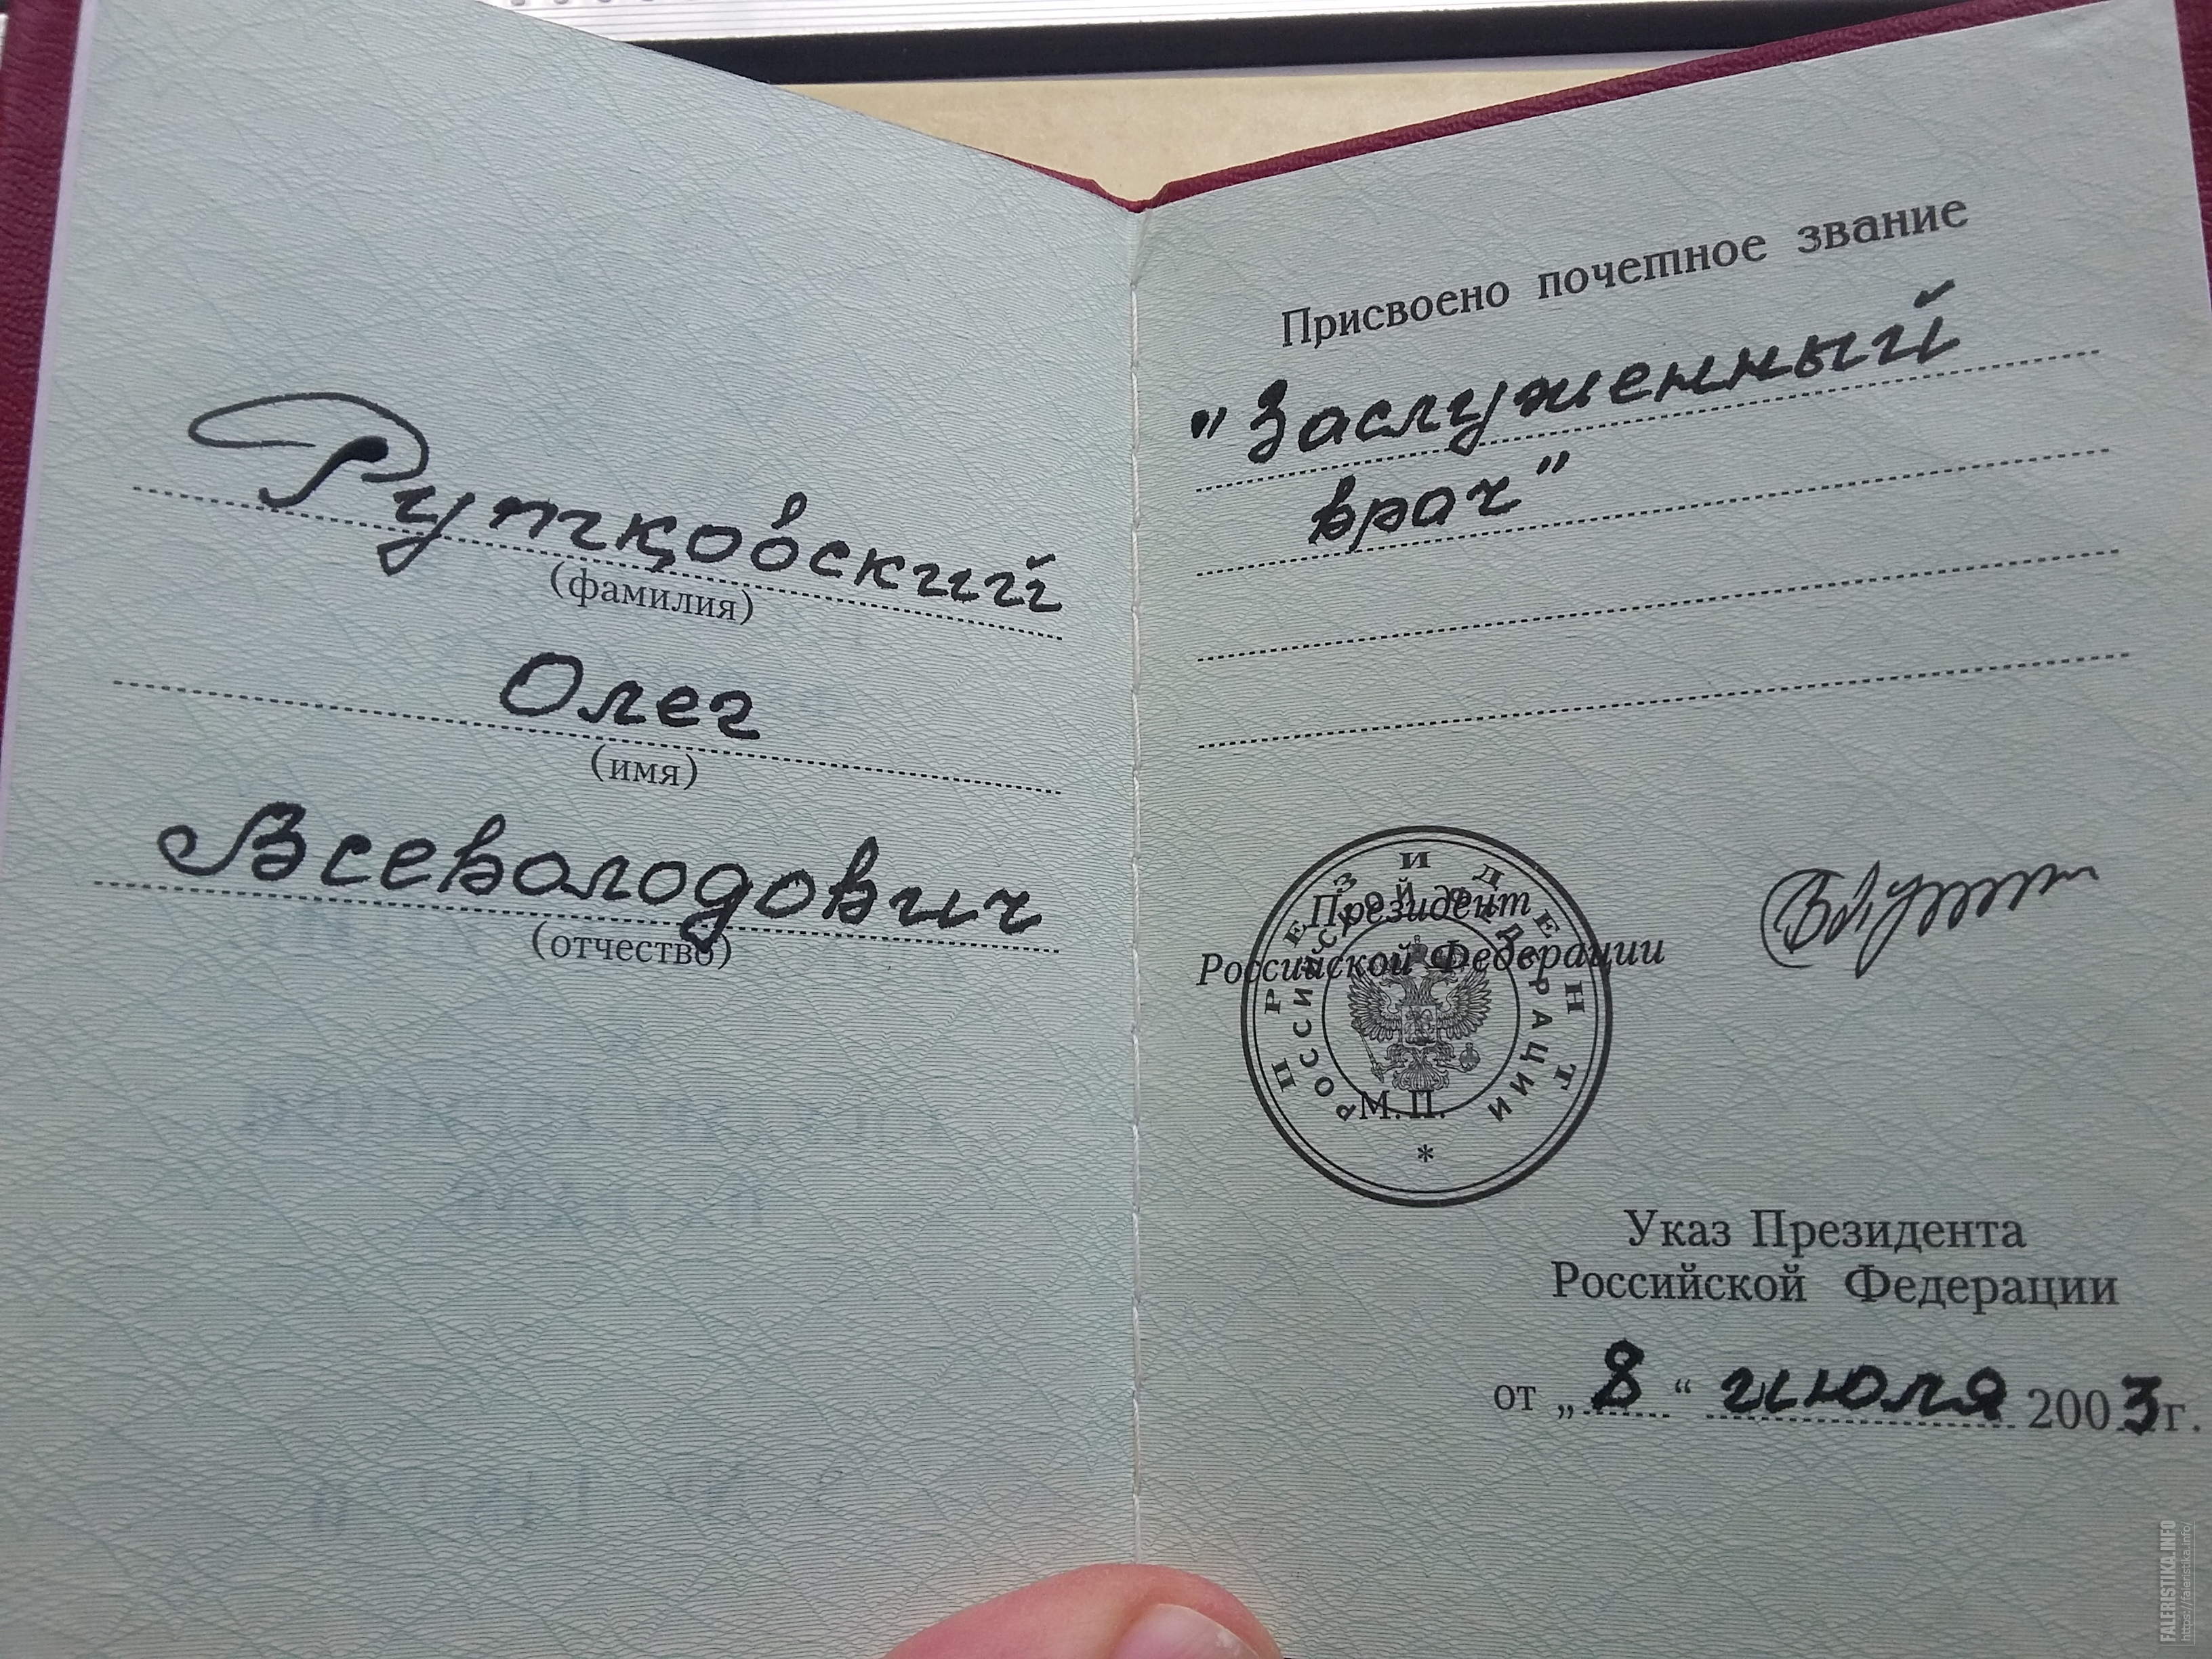 Рутковский
(фамилия)
Олег
(имя)
Всеволодович
(отчество)
Присвоено почетное звание
"Заслуженный
врач"
Президент
Российской Федерации
ПРЕЗИДЕНТ
РОССИЙСКОЙ ФЕДЕРАЦИИ
*
М.П.
Указ Президента
Российской Федерации
от „8“ июля 2003г.
FALERISTIKA.INFO
https://faleristika.info/